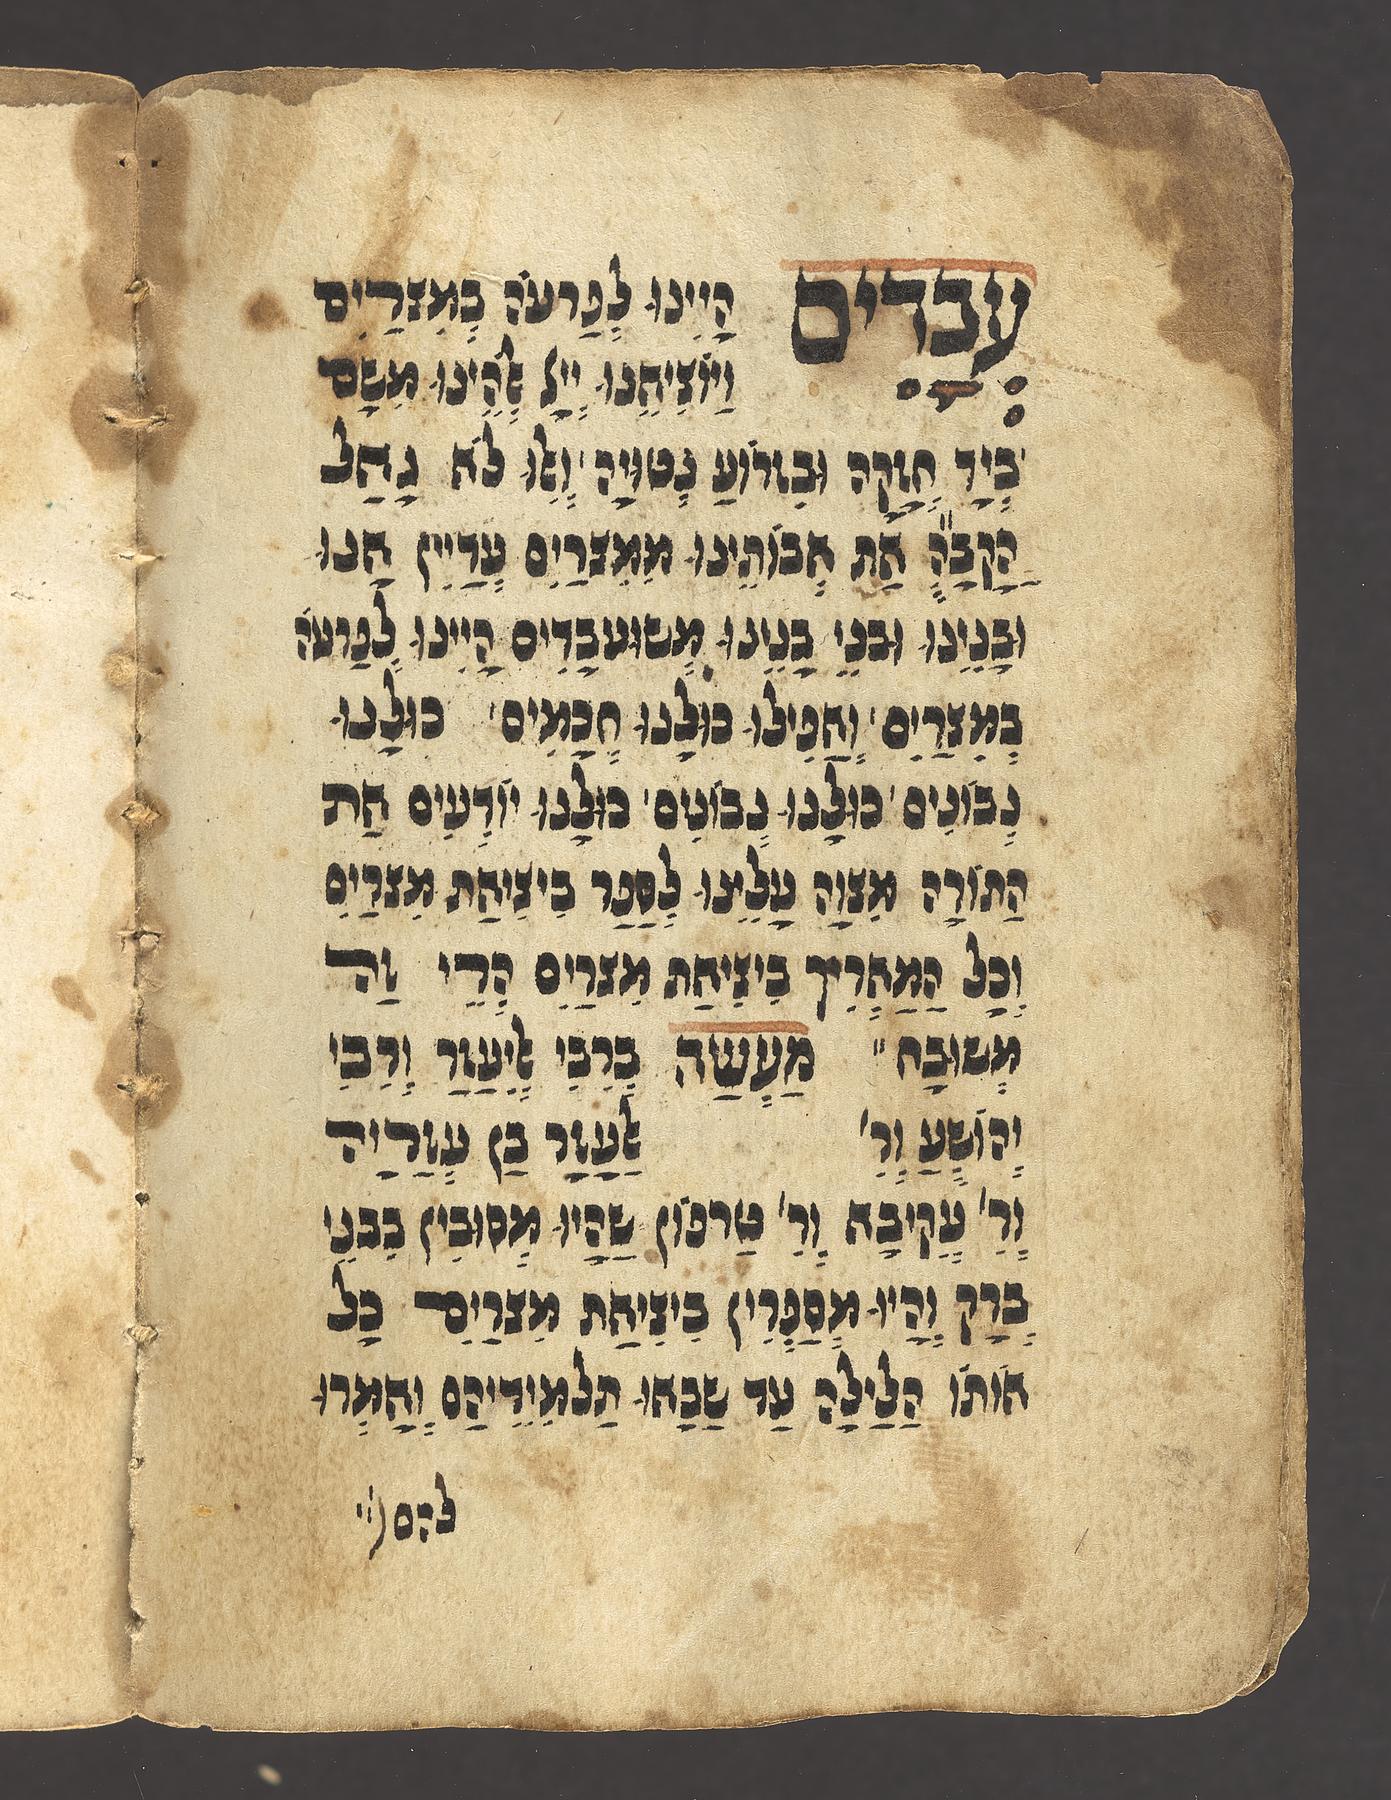 עֲבָדִים הָיִינוּ לְפַרְעֹה בְּמִצְרַיִם
וַיּוֹצִיאֵנוּ יְיָ אֱלֹהֵינוּ מִשָּׁם
בְּיַד חֲזָקָה וּבִזְרוֹעַ נְטוּיָה וְאִלּוּ לֹא גָאַל
הַקָבָ״ה אֶת אֲבוֹתֵינוּ מִמִצְרַיִם עֲדַיִין אָנוּ
וּבָנֵינוּ וּבְנֵי בָנֵינוּ מְשׁוּעְבָּדִים הָיִינוּ לְפַרְעֹה
בְּמִצְרַיִם׳ וַאֲפִילוּ כּוּלָנוּ חֲכָמִים׳ כּוּלָנוּ
נְבוֹנִים׳ כּוּלָנוּ נְבוֹנִים׳ כּוּלָנוּ יוֹדְעִים אֶת
הַתּוֹרָה מִצְוָה עָלֵינוּ לְסַפֵּר בִּיצִיאַת מִצְרַיִם
וְכָל הַמַאֲרִיךְ בִּיצִיאַת מִצְרַיִם הֲרֵי זֶה
מְשׁוּבָּח״ מַעֲשֶׂה בְּרַבִּי אֱלִיעֶזֶר וְרַבִּי
יְהוֹשֻׁעַ וְר׳ אֶלְעָזָר בֶּן עֲזַרְיָה
וְר׳ עֲקִיבָא וְר׳ טַרְפוֹן שֶׁהָיוּ מְסוּבִּין בִּבְנֵי
בְרַק וְהָיוּ מְסַפְּרִין בִּיצִיאַת מִצְרַיִם כָּל
אוֹתוֹ הַלַיְלָה עַד שֶׁבָּאוּ תַלְמִידֵיהֶם וְאָמְרוּ
להם